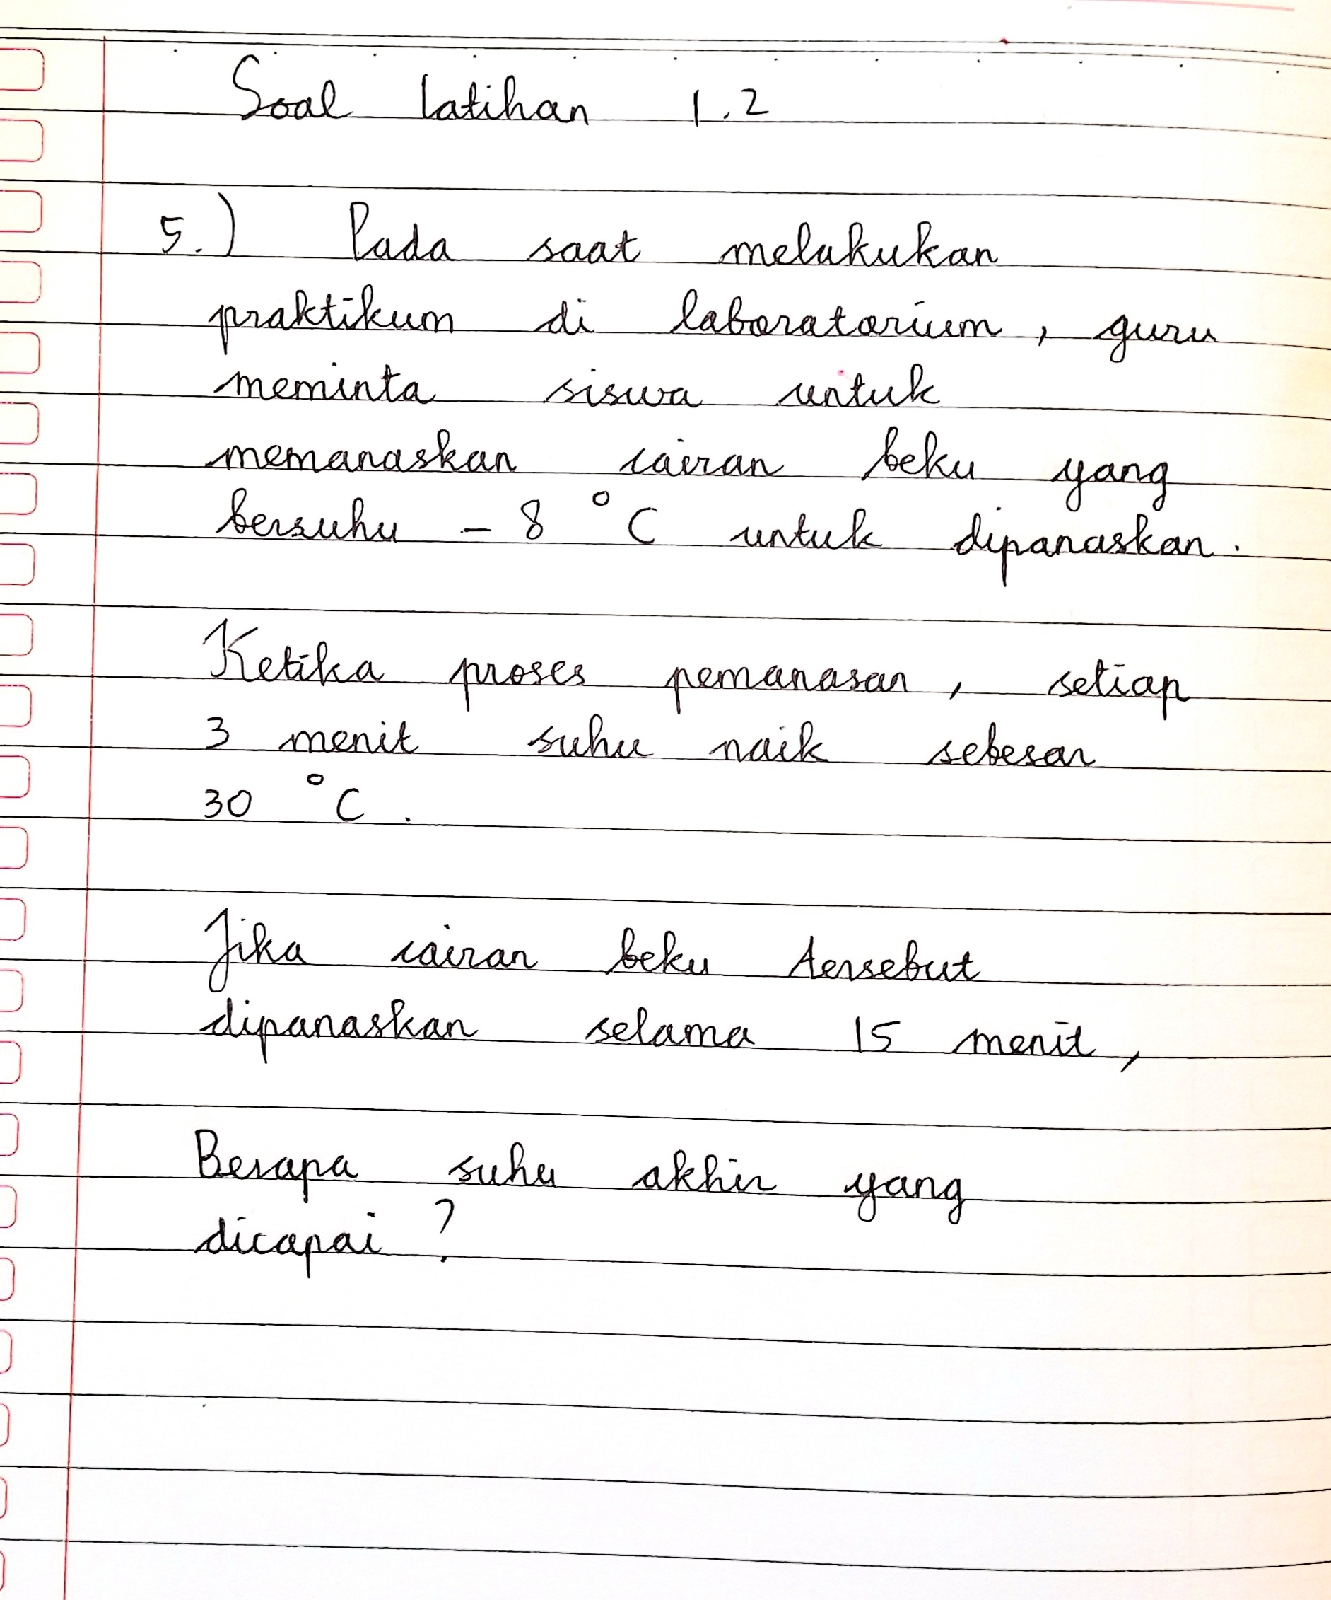 Soal latihan 1.2
5.) Pada saat melakukan
praktikum di laboratorium, guru
meminta siswa untuk
memanaskan cairan beku yang
bersuhu - 8 °C untuk dipanaskan.
Ketika proses pemanasan, setiap
3 menit suhu naik sebesar
30 °C.
Jika cairan beku tersebut
dipanaskan selama 15 menit,
Berapa suhu akhir yang
dicapai ?